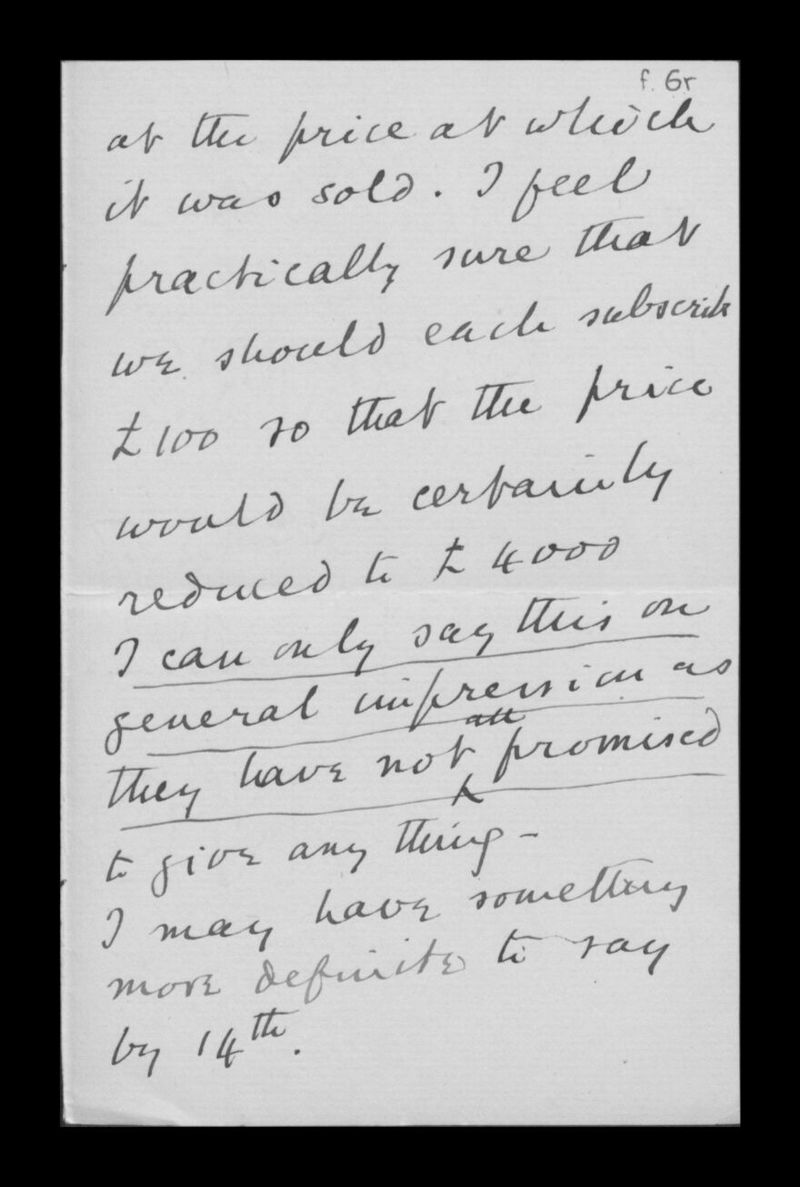 f. 6r
at the price at which
it was sold. I feel
practically sure that
we should each subscribe
£100 so that the price
would be certainly
reduced to £4000
I can only say this on
general impression as
all
they have not promised
to give any thing -
I may have something
more definite to say
by 14th.